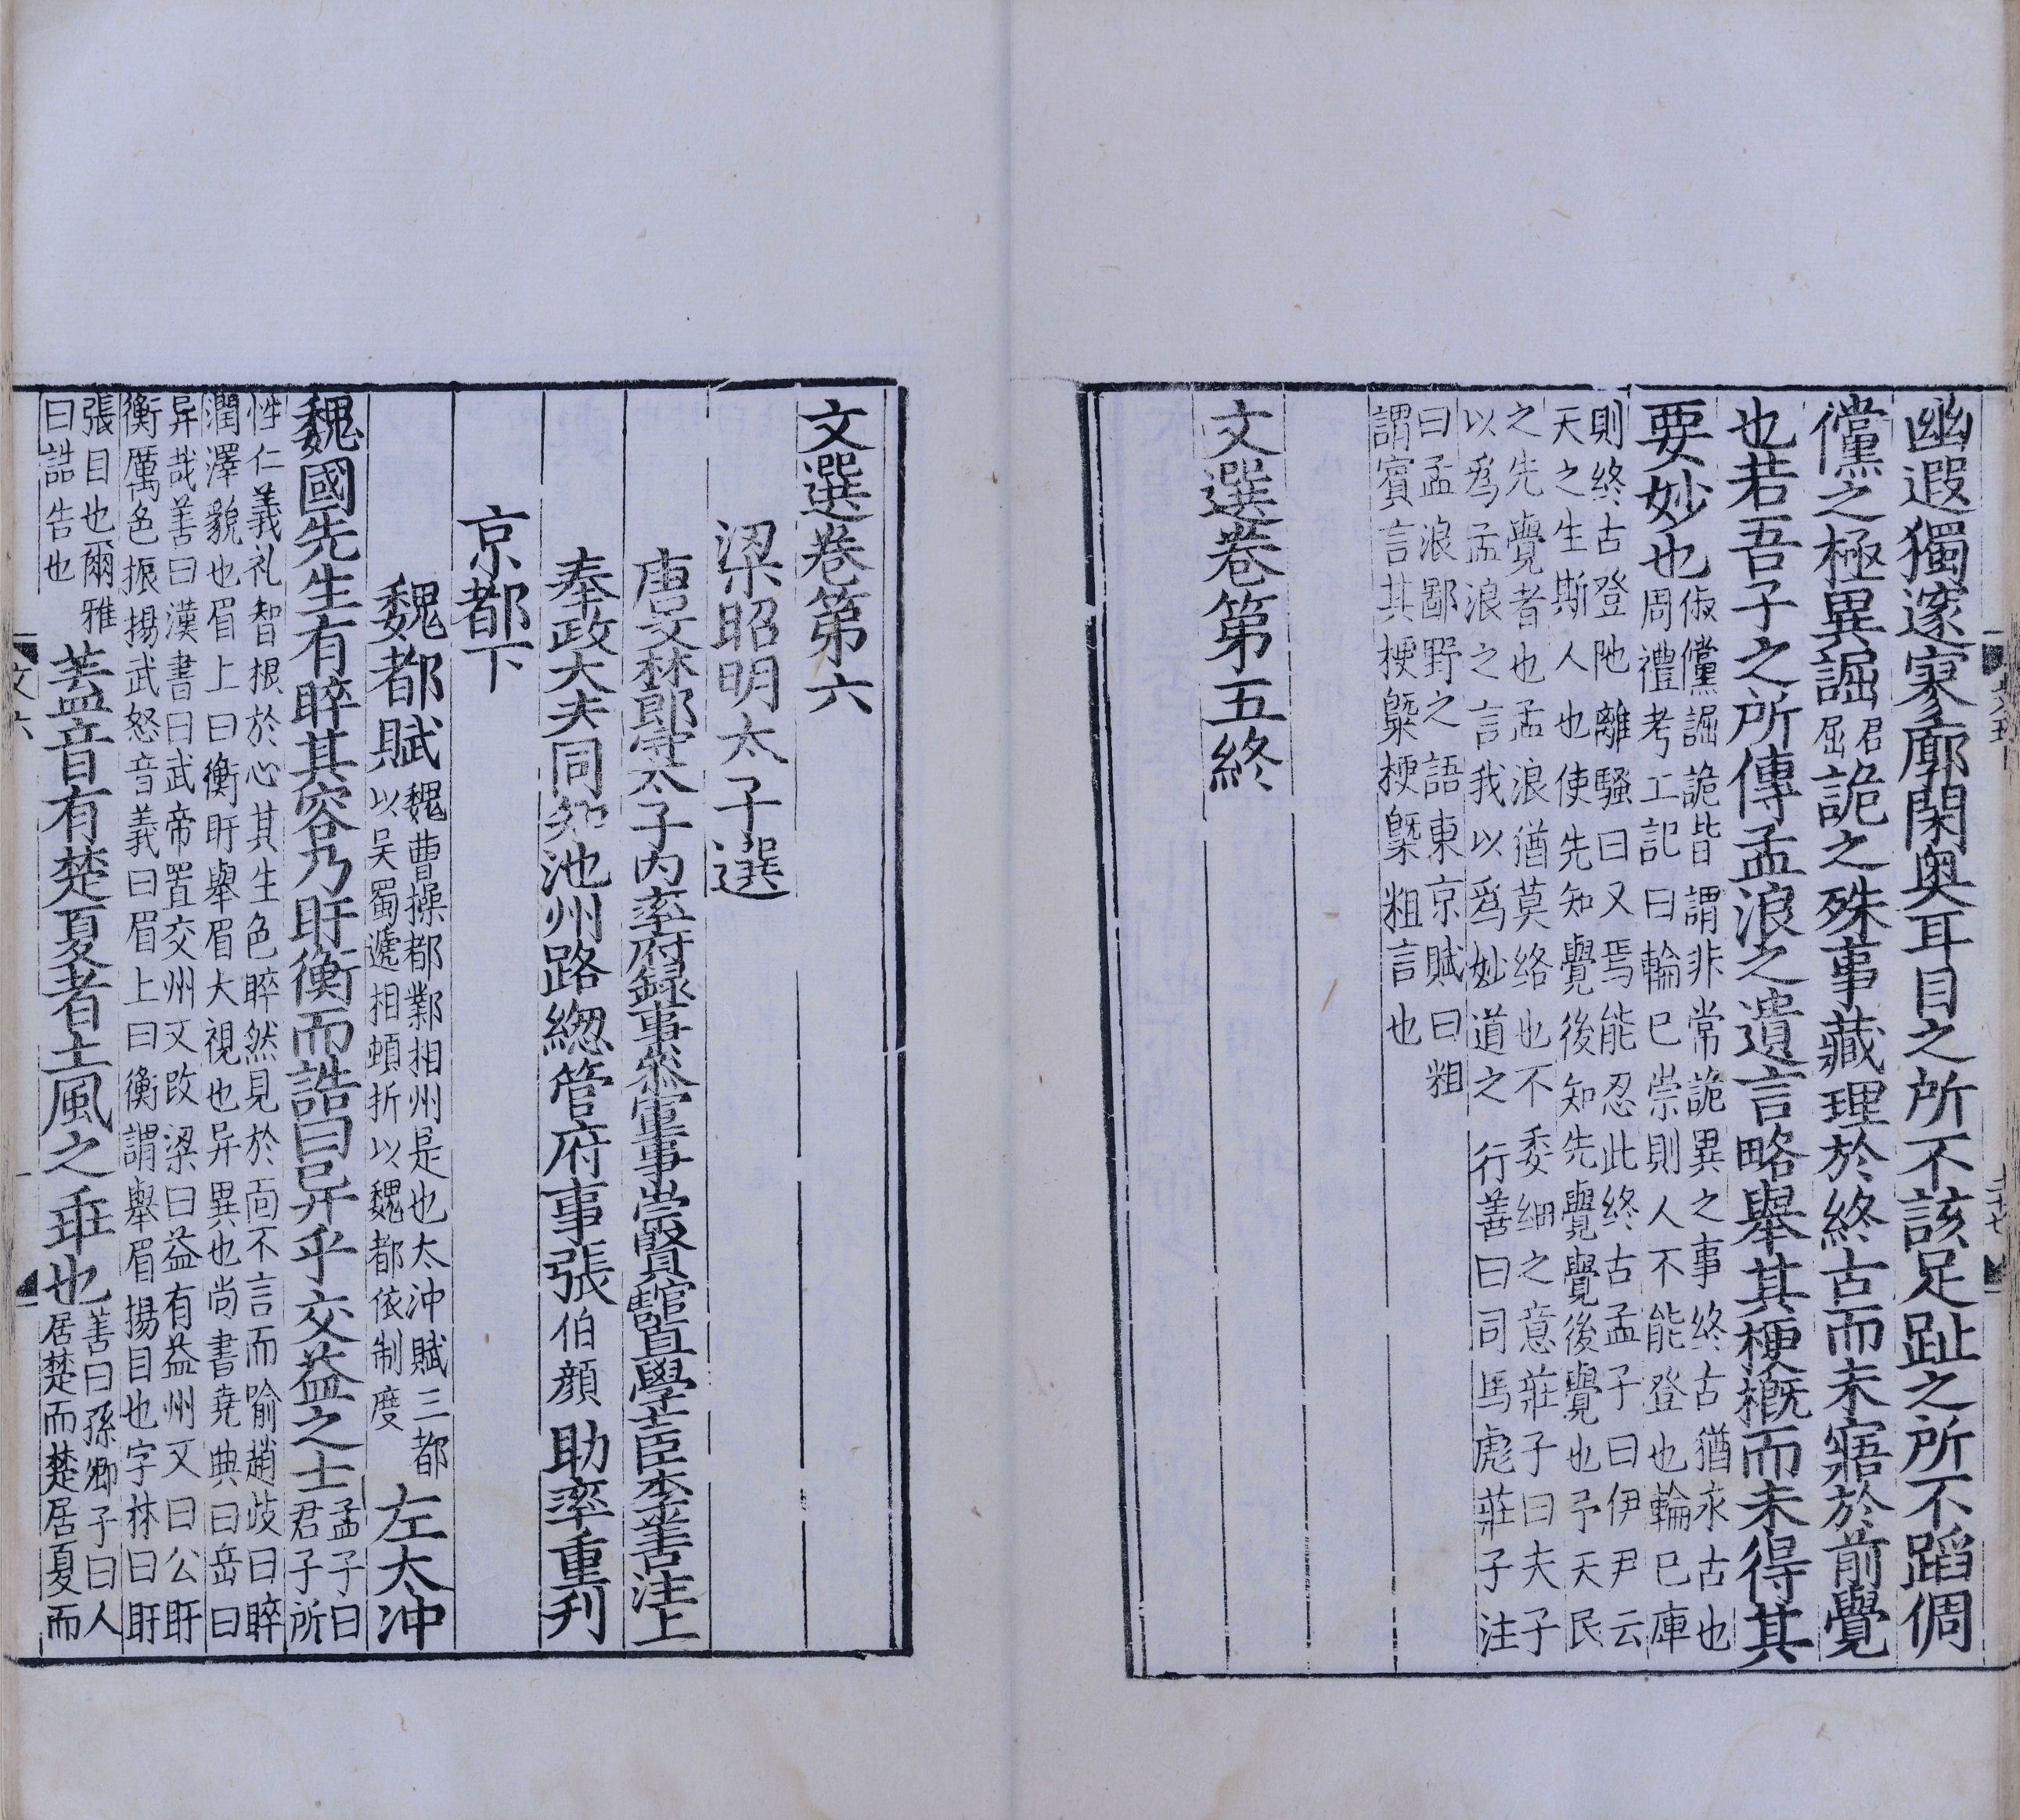 幽遐獨邃寥廓閑奧耳目之所不該足趾之所不蹈倜
儻之極異䛼君屈詭之殊事藏理於終古而未寤於前覺
也若吾子之所傳孟浪之遺言略舉其梗槪而未得其
要妙也俶儻䛼詭皆謂非常詭異之事終古猶永古也
周禮考工記曰輪已崇則人不能登也輪已庳
則終古登阤離騷曰又焉能忍此終古孟子曰伊尹云
天之生斯人也使先知覺後知先覺覺後覺也予天民
之先覺者也孟浪猶莫絡也不委細之意莊子曰夫子
以爲孟浪之言我以爲妙道之行善曰司馬彪莊子注
曰孟浪鄙野之語東京賦曰粗
謂賓言其梗槩梗槩粗言也
文選卷第五終
文選卷第六
梁昭明太子選
唐文林郎守太子內率府録事叅軍事崇賢館直學士臣李善注上
奉政大夫同知池州路緫管府事張伯顔助率重刊
京都下
魏都賦魏曹操都鄴相州是也太沖賦三都
以吴蜀遞相頓折以魏都依制度
左太冲
魏國先生有睟其容乃盱衡而誥曰异乎交益之士孟子曰
君子所
性仁義礼智根於心其生色睟然見於面不言而喻趙歧曰睟
潤澤貌也眉上曰衡盱舉眉大視也异異也尚書堯典曰岳曰
异哉善曰漢書曰武帝置交州又改梁曰益有益州又曰公盱
衡厲色振揚武怒音義曰眉上曰衡謂舉眉揚目也字林曰盱
張目也爾雅
曰誥告也
蓋音有楚夏者土風之乖也善曰孫卿子曰人
居楚而楚居夏而
文六